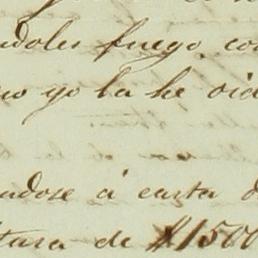 ndoles fuego con
mo yo la he oid
ndose á esta d
tura de $1500